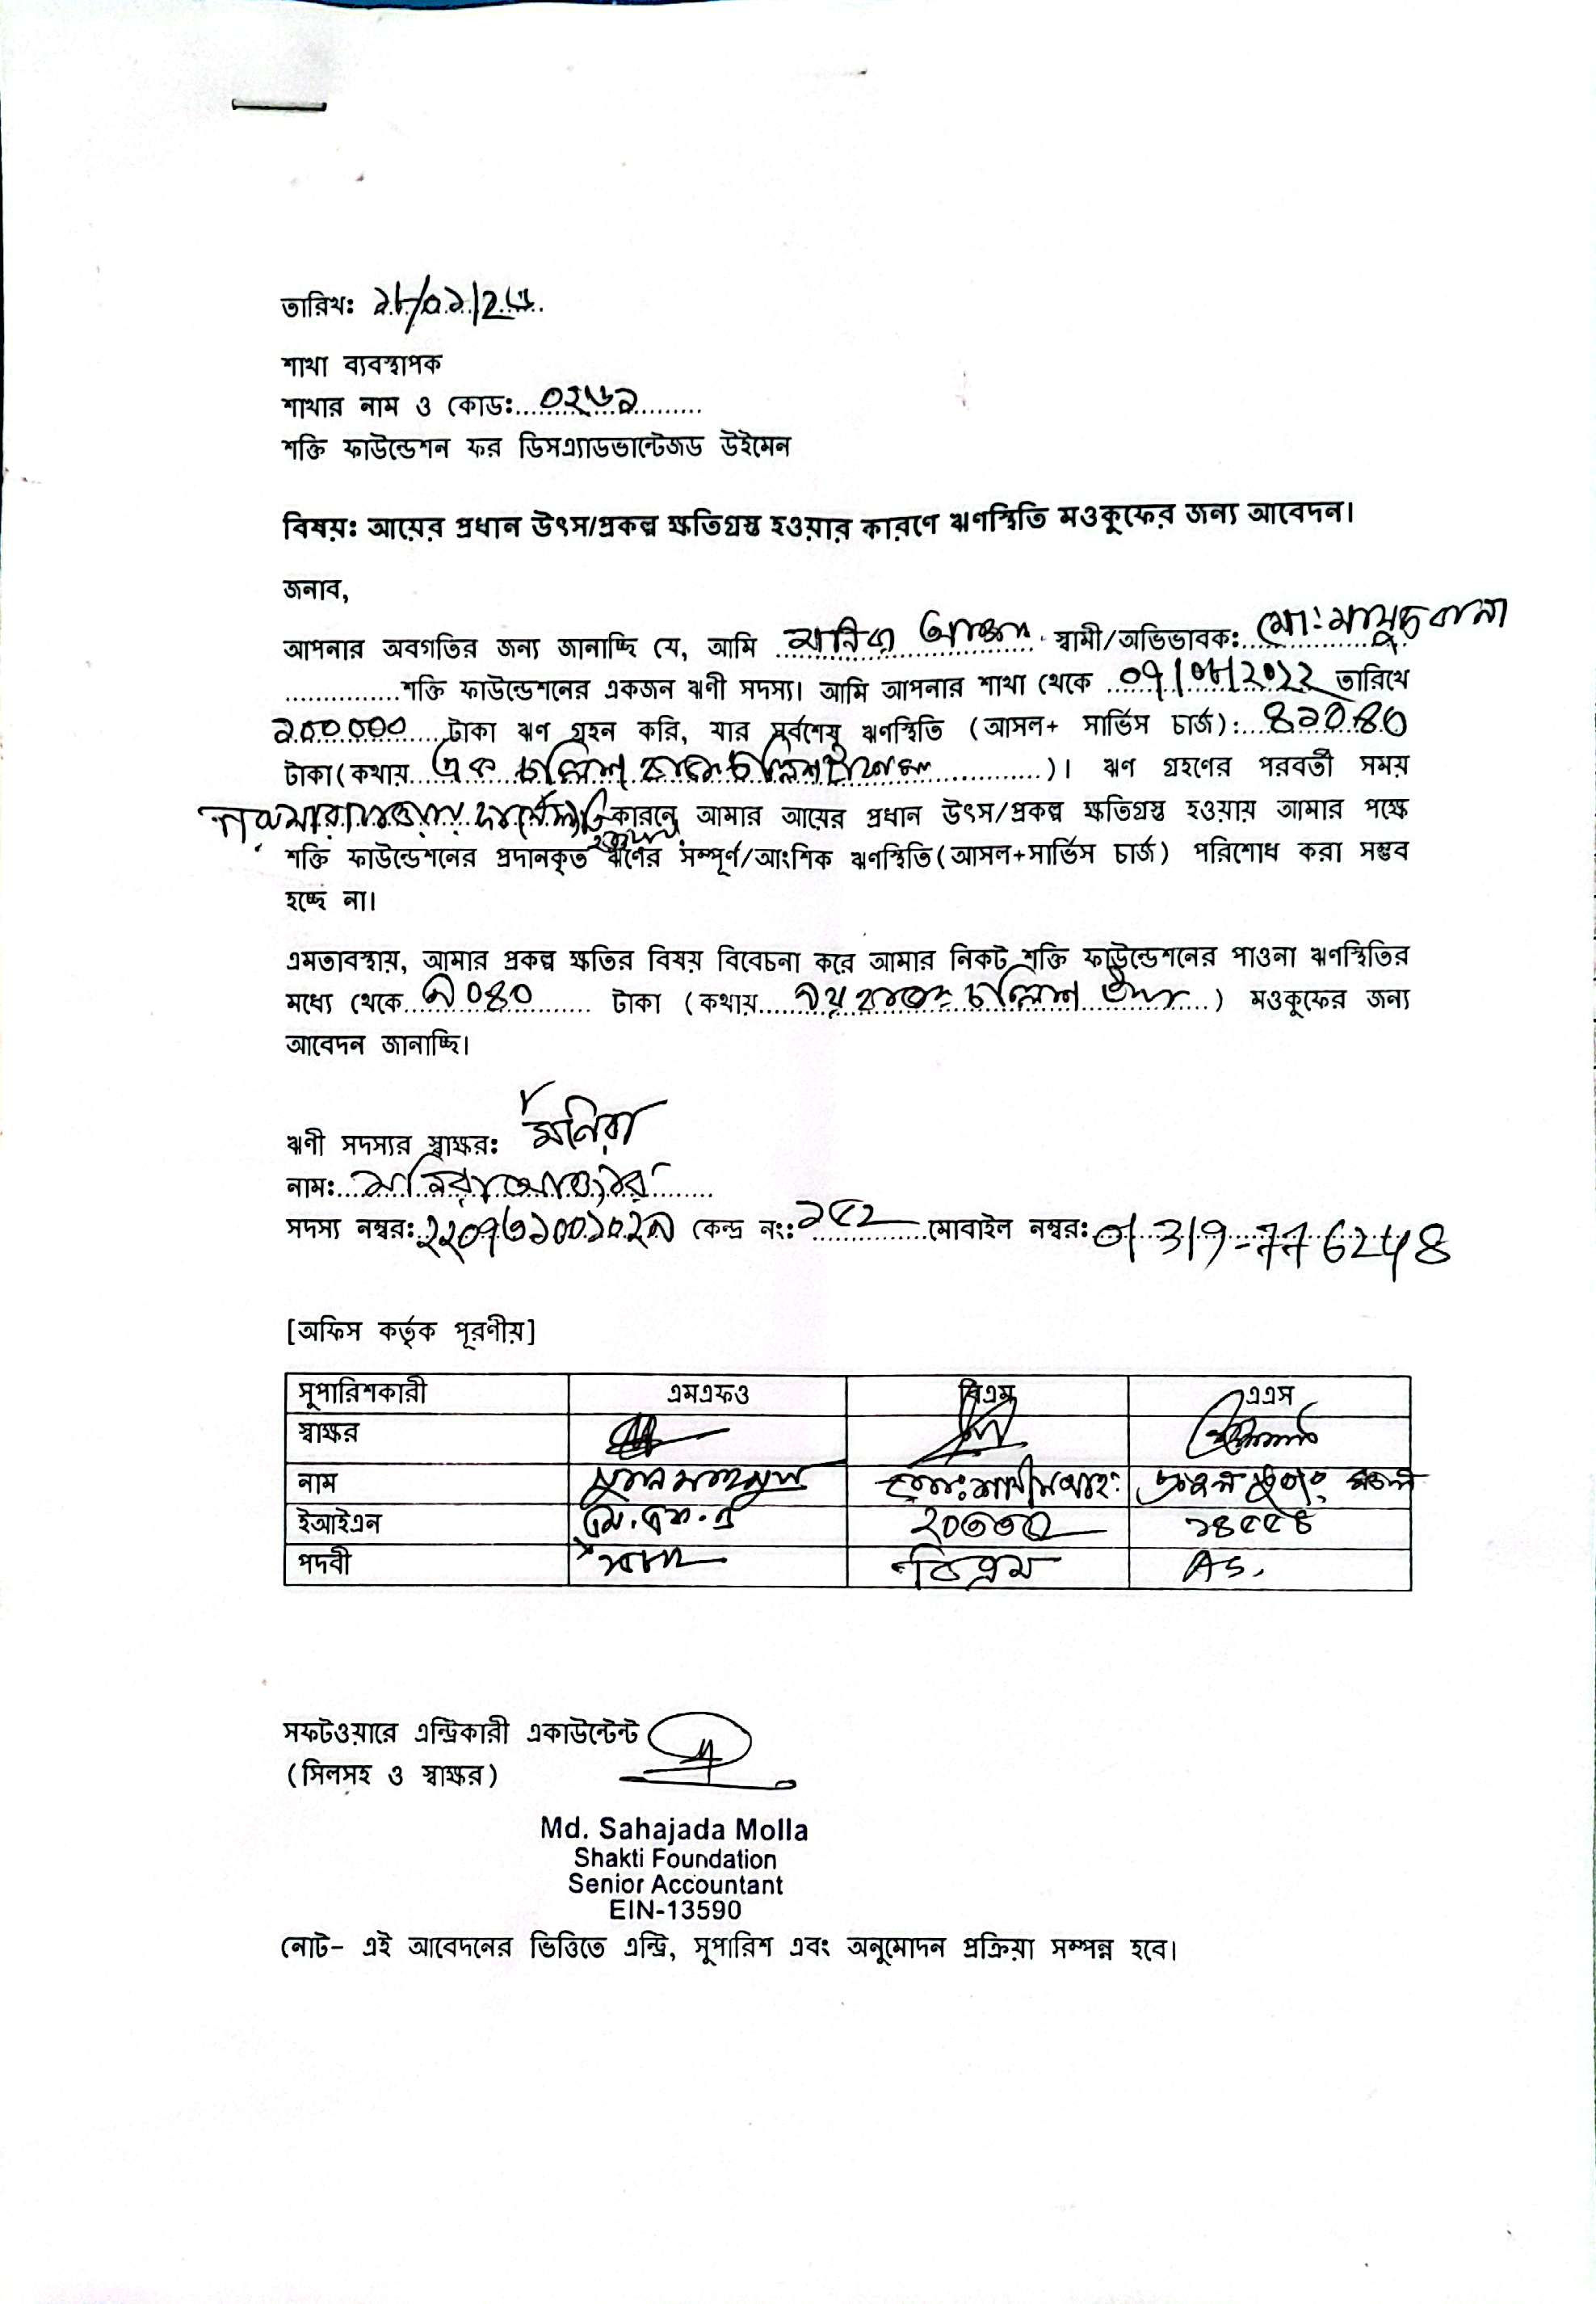 তারিখঃ ১৮/০১/২৬
শাখা ব্যবস্থাপক
শাখার নাম ও কোডঃ ০২৬১
শক্তি ফাউন্ডেশন ফর ডিসএ্যাডভান্টেজড উইমেন
বিষয়ঃ আয়ের প্রধান উৎস/প্রকল্প ক্ষতিগ্রস্ত হওয়ার কারণে ঋণস্থিতি মওকুফের জন্য আবেদন।
জনাব,
আপনার অবগতির জন্য জানাচ্ছি যে, আমি মনিরা আক্তার স্বামী/অভিভাবক: মো: মাসুদ রানা
শক্তি ফাউন্ডেশনের একজন ঋণী সদস্য। আমি আপনার শাখা থেকে ০৭/০৮/২০২২ তারিখে
১০০০০০ টাকা ঋণ গ্রহন করি, যার সর্বশেষ ঋণস্থিতি (আসল+ সার্ভিস চার্জ): ৪১০৪০
টাকা(কথায় এক চল্লিশ হাজার চল্লিশ টাকা )। ঋণ গ্রহণের পরবর্তী সময়
কারনে আমার আয়ের প্রধান উৎস/প্রকল্প ক্ষতিগ্রস্ত হওয়ায় আমার পক্ষে
শক্তি ফাউন্ডেশনের প্রদানকৃত ঋণের সম্পূর্ণ/আংশিক ঋণস্থিতি(আসল+সার্ভিস চার্জ) পরিশোধ করা সম্ভব
হচ্ছে না।
এমতাবস্থায়, আমার প্রকল্প ক্ষতির বিষয় বিবেচনা করে আমার নিকট শক্তি ফাউন্ডেশনের পাওনা ঋণস্থিতির
মধ্যে থেকে ৯০৪০ টাকা (কথায় নয় হাজার চল্লিশ টাকা ) মওকুফের জন্য
আবেদন জানাচ্ছি।
ঋণী সদস্যর স্বাক্ষর: মনিরা
নাম: মনিরা আক্তার
সদস্য নম্বর: ২২০৭৬১০০১০২৯ কেন্দ্র নং: ১৫২ মোবাইল নম্বর: 01319-776248
[অফিস কর্তৃক পূরণীয়]
সুপারিশকারী এমএফও বিএম এএস
স্বাক্ষর
নাম
ইআইএন ২০৩৩৫ ১৪৫৫৪
পদবী বিএম AS.
সফটওয়ারে এন্ট্রিকারী একাউন্টেন্ট
(সিলসহ ও স্বাক্ষর)
Md. Sahajada Molla
Shakti Foundation
Senior Accountant
EIN-13590
নোট- এই আবেদনের ভিত্তিতে এন্ট্রি, সুপারিশ এবং অনুমোদন প্রক্রিয়া সম্পন্ন হবে।